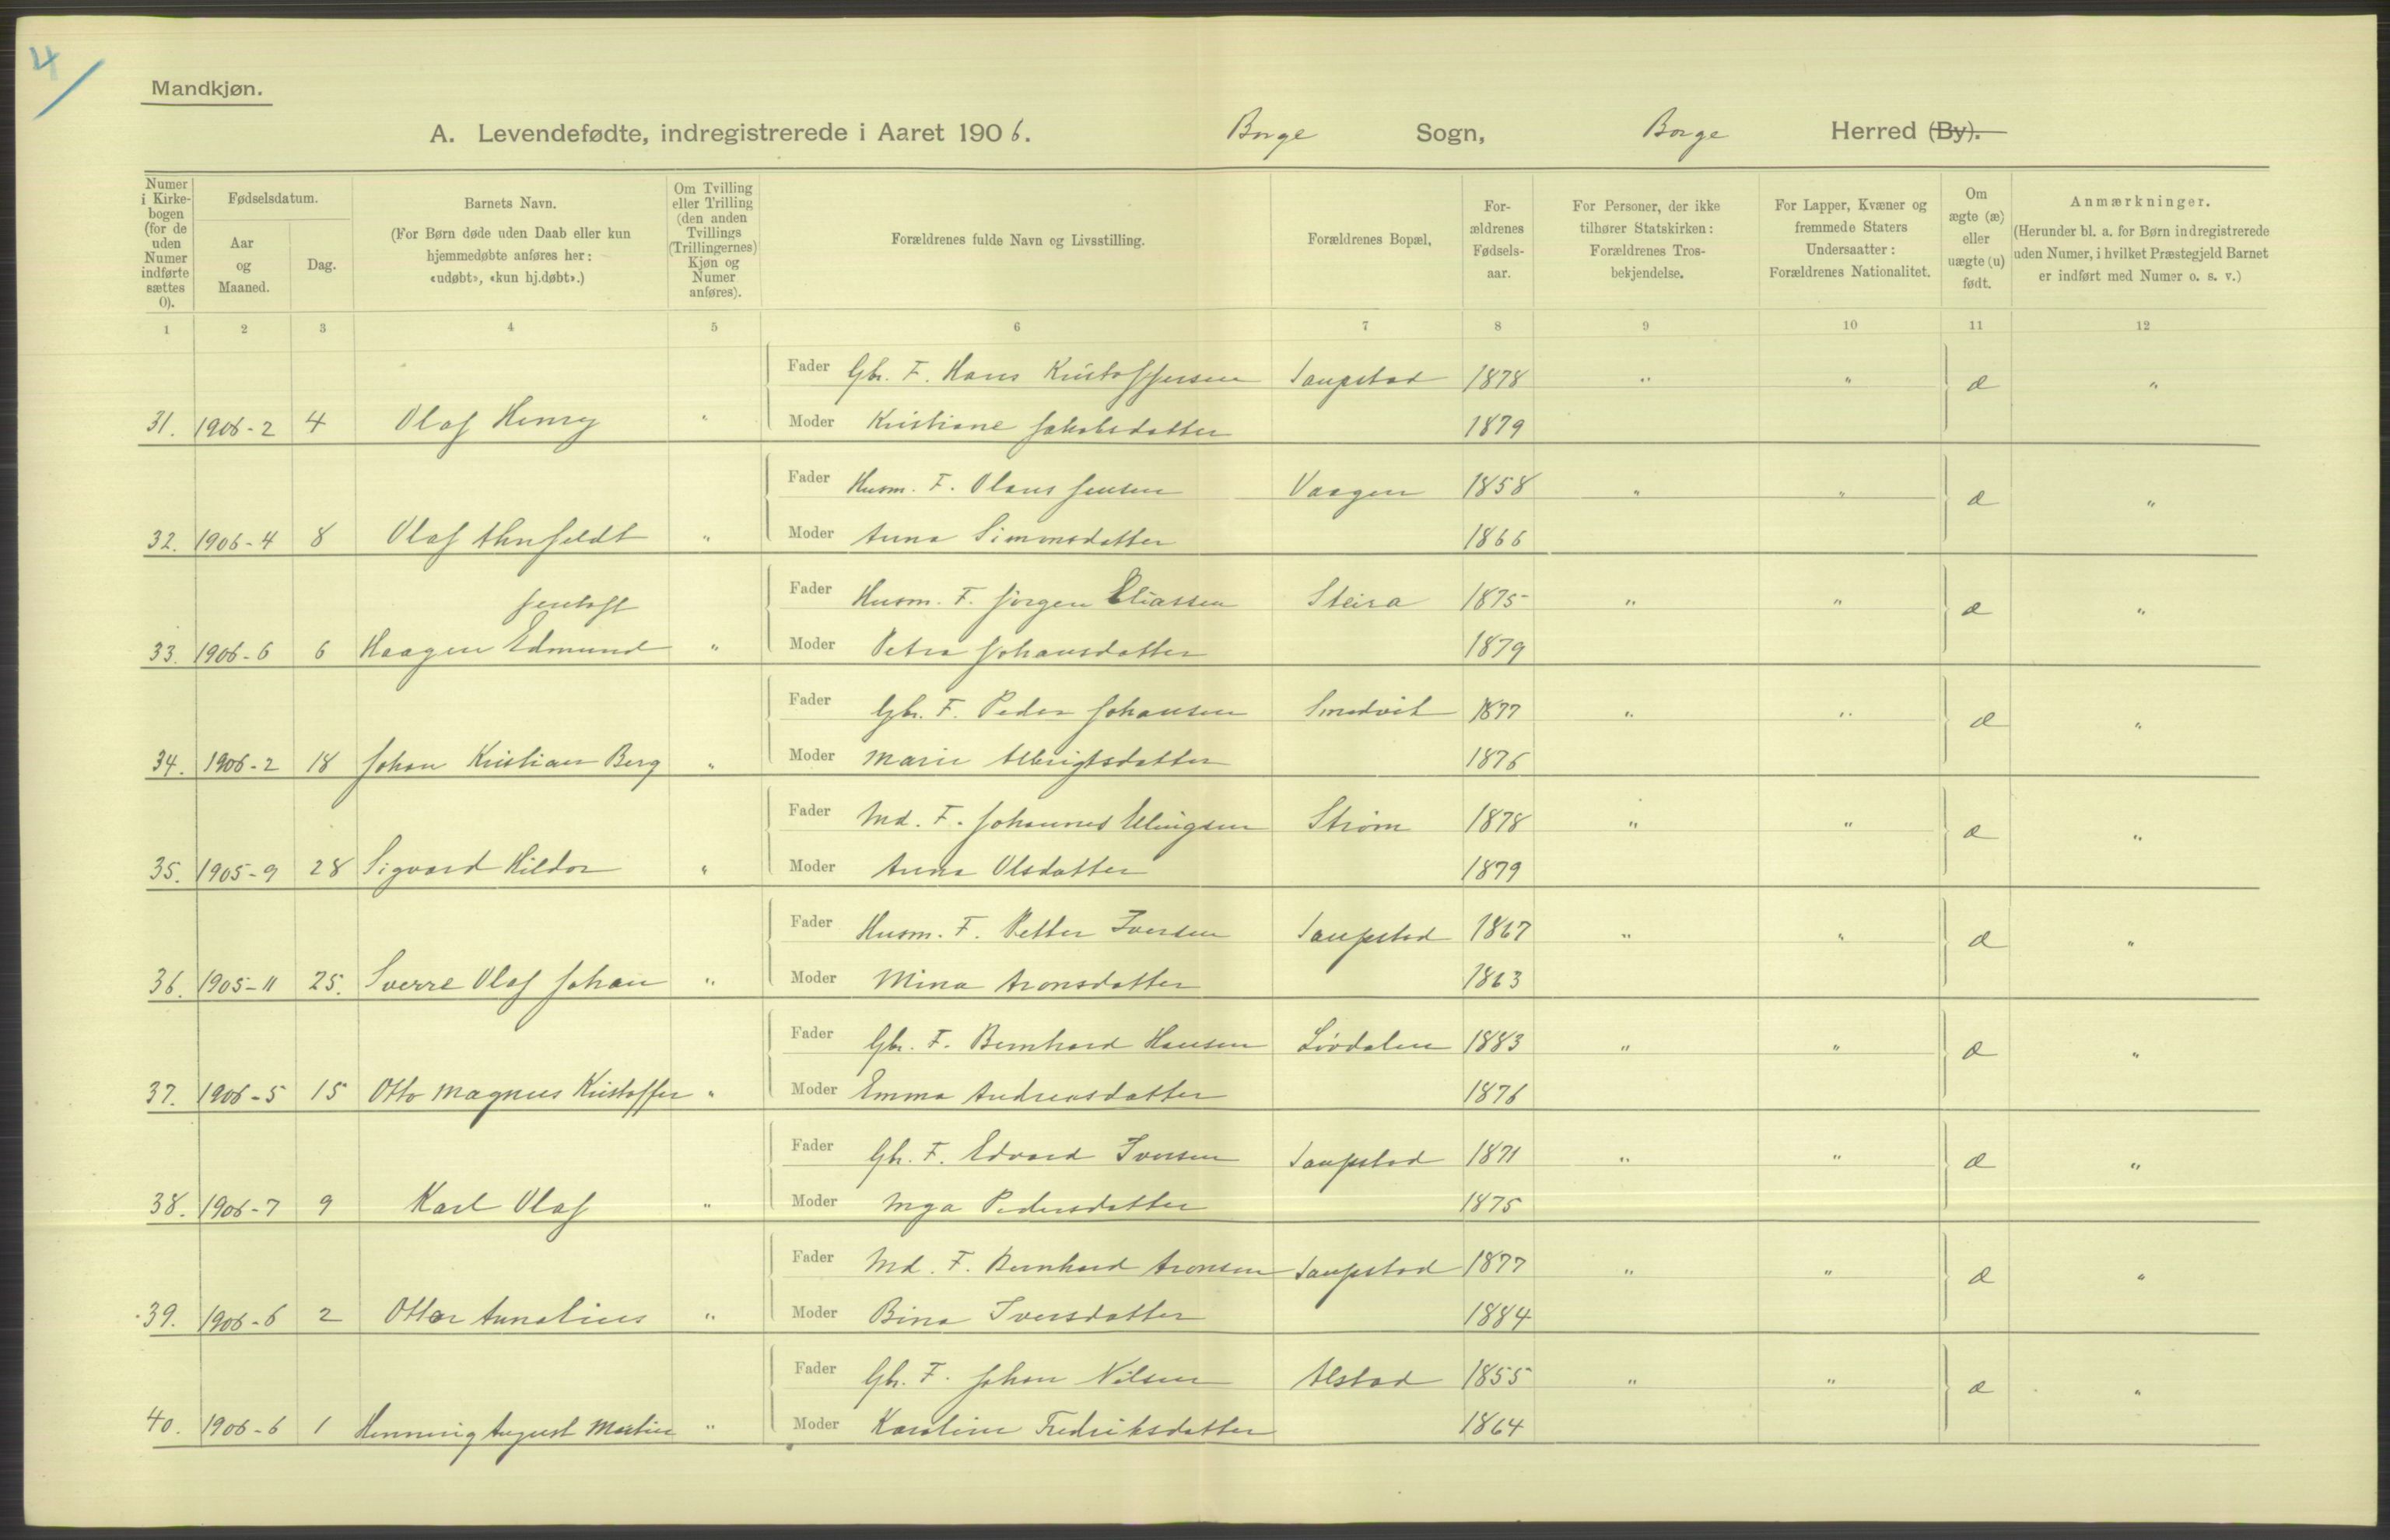 4
Mandkjøn.
A. Levendefødte, indregistrerede i Aaret 1906. Borge Sogn, Borge Herred (By).
Numer i Kirkebogen (for de uden Numer indførte sættes 0).
Fødselsdatum.
Aar og Maaned.
Dag.
Barnets Navn.
(For Børn døde uden Daab eller kun hjemmedøbte anføres her: «udøbt», «kun hj.døbt».)
Om Tvilling eller Trilling (den anden Tvillings (Trillingernes) Kjøn og Numer anføres).
Forældrenes fulde Navn og Livsstilling.
Forældrenes Bopæl.
Forældrenes Fødselsaar.
For Personer, der ikke tilhører Statskirken: Forældrenes Trosbekjendelse.
For Lapper, Kvæner og fremmede Staters Undersaatter: Forældrenes Nationalitet.
Om ægte (æ) eller uægte (u) født.
Anmærkninger.
(Herunder bl. a. for Børn indregistrerede uden Numer, i hvilket Præstegjeld Barnet er indført med Numer o. s. v.)
1 2 3 4 5 6 7 8 9 10 11 12
Fader Gbr. F. Hans Kristoffersen Saupstad 1878 " " æ "
31. 1906-2 4 Olaf Henry " Moder Kristiane Jakobsdatter 1879
Fader Husm. F. Olaus Jensen Vaagen 1858 " " æ "
32. 1906-4 8 Olaf " Moder Anna Simonsdatter 1866
Fader Husm. F. Jørgen Eliassen Steira 1875 " " æ "
Jentoft
33. 1906-6 6 Haagen Edmund " Moder Petra Johansdatter 1879
Fader Gbr. F. Peder Johansen Smedvik 1877 " " æ "
34. 1906-2 18 Johan Kristian Berg " Moder Marie Albrigtsdatter 1876
Fader Md. F. Johannes Ellingsen Strøm 1878 " " æ "
35. 1905-9 28 Sigvard Hildor " Moder Anna Olsdatter 1879
Fader Husm. F. Petter Iversen Saupstad 1867 " " æ "
36. 1905-11 25. Sverre Olaf Johan " Moder Mina Aronsdatter 1863
Fader Gbr. F. Bernhard Hansen Løvdalen 1883 " " æ "
37. 1906-5 15 Otto Magnus Kristoffer " Moder Emma Andreasdatter 1876
Fader Gbr. F. Edvard Iversen Saupstad 1871 " " æ "
38. 1906-7 9 Karl Olaf " Moder Inga Pedersdatter 1875
Fader Md. F. Bernhard Aronsen Saupstad 1877 " " æ "
39. 1906-6 2 Ottar " Moder Bina Iversdatter 1884
Fader Gbr. F. Johan Nilsen Alstad 1855 " " æ "
40. 1906-6 1 Henning August Martin " Moder Karoline Fredriksdatter 1864